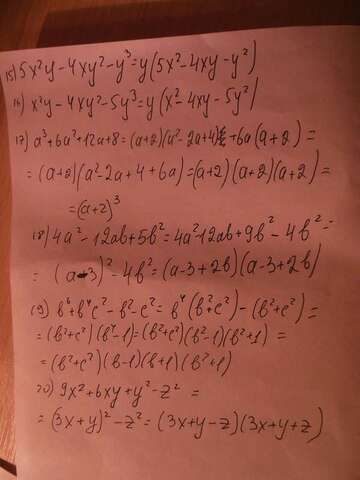 15) 5x²y-4xy²-y³=y(5x²-4xy-y²)
16) x²y-4xy²-5y³=y(x²-4xy-5y²)
17) a³+6a²+12a+8=(a+2)(a²-2a+4)+6a(a+2)=
=(a+2)(a²-2a+4+6a)=(a+2)(a+2)(a+2)=
=(a+2)³
18) 4a²-12ab+5b²=4a²12ab+9b²-4b²=
=(a-3)²-4b²=(a-3+2b)(a-3+2b)
19) b⁶+b⁴c²-b²-c²=b⁴(b²+c²)-(b²+c²)=
=(b²+c²)(b⁴-1)=(b²+c²)(b²-1)(b²+1)=
=(b²+c²)(b-1)(b+1)(b²+1)
20) 9x²+6xy+y²-z²=
=(3x+y)²-z²=(3x+y-z)(3x+y+z)